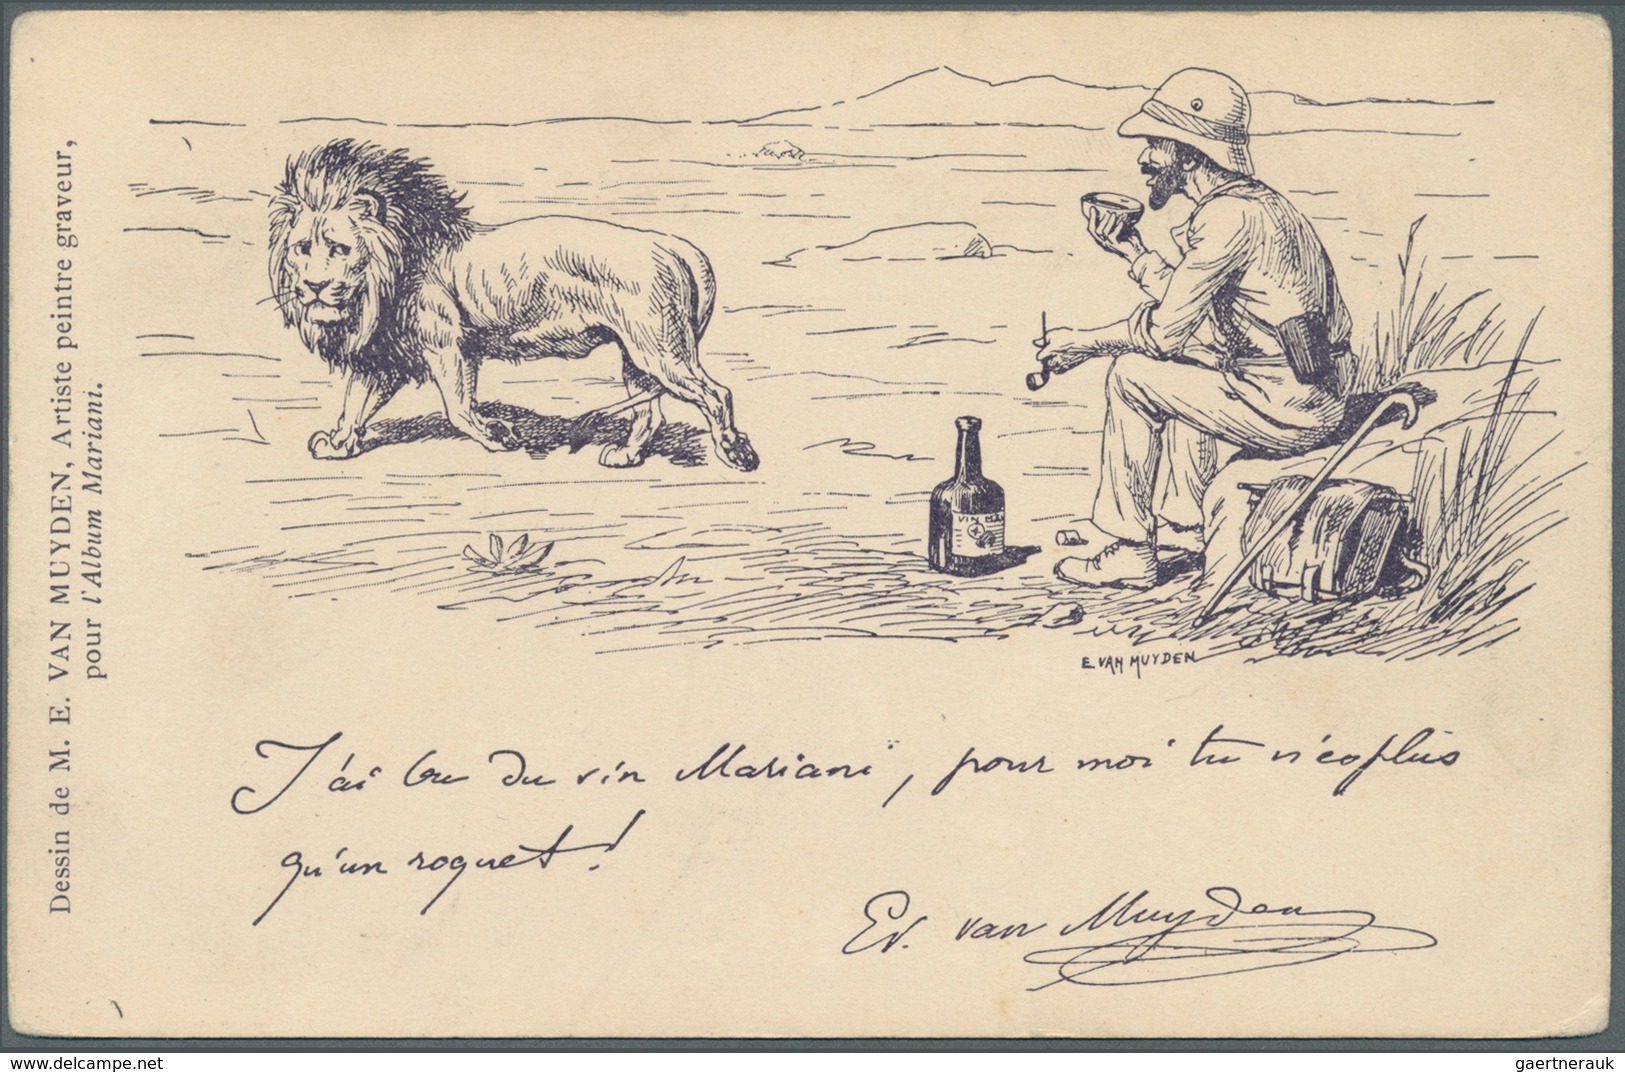 Dessin de M. E. VAN MUYDEN, Artiste peintre graveur,
pour l'Album Mariani.
VIN MA
E. VAN MUYDEN
J'ai bu du vin Mariani, pour moi tu n'es plus
qu'un roquet!
Ev. van Muyden
delcampe.net
gaertnerauk